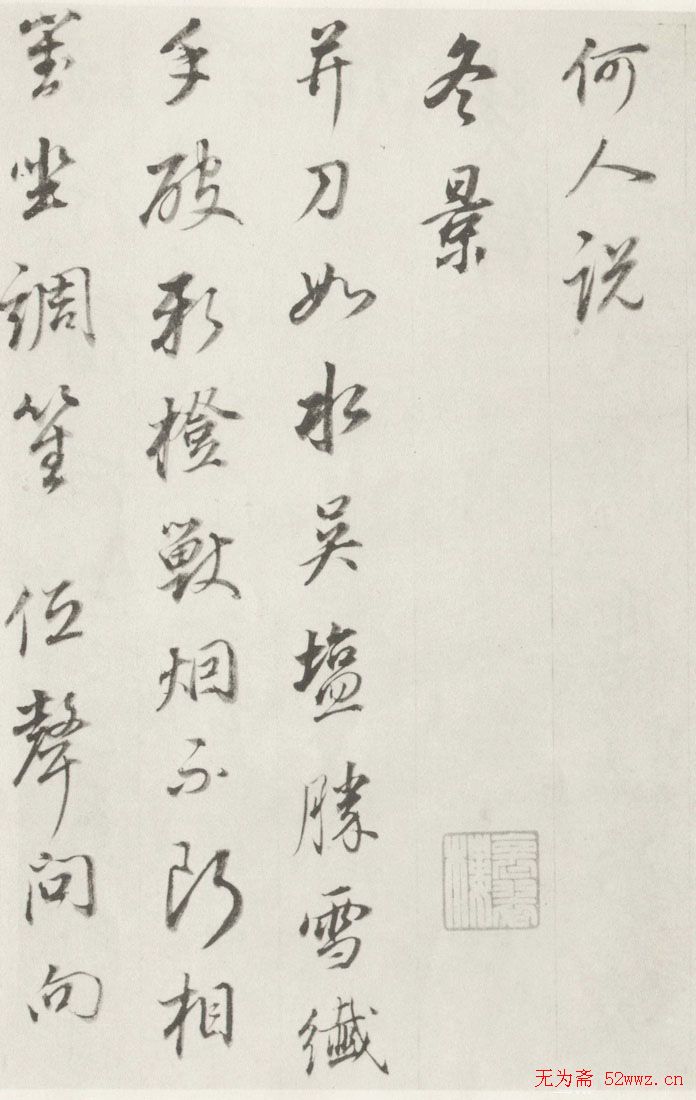 何人說
冬景
并刀如水吴塩勝雪纖
手破新橙獸烟不断相
對坐調笙低聲問向
无为斋 52wwz.cn